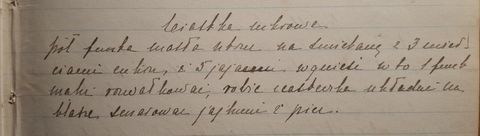 Ciastka cukrowe
pół funta masła utrzeć na śmietanę z 3 ćwierciami cukru, i 5 jajami wgnieść w to 1 funt
mąki rozwałkować, robić ciasteczka układać na
blasze smarować jajkiem i piec.